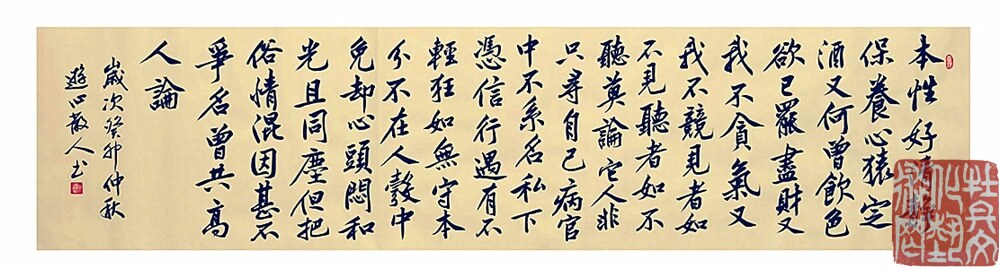 本性好清
保養心猿定
酒又何曾飲色
欲已罷盡財又
我不貪氣又
我不競見者如
不見聽者如不
聽莫論它人非
只尋自己病官
中不系名私下
憑信行遇有不
輕狂如無守本
分不在人彀中
免却心頭悶和
光且同塵但把
俗情混因甚不
爭名曾共高
人論
歲次癸卯仲秋
遊心散人书